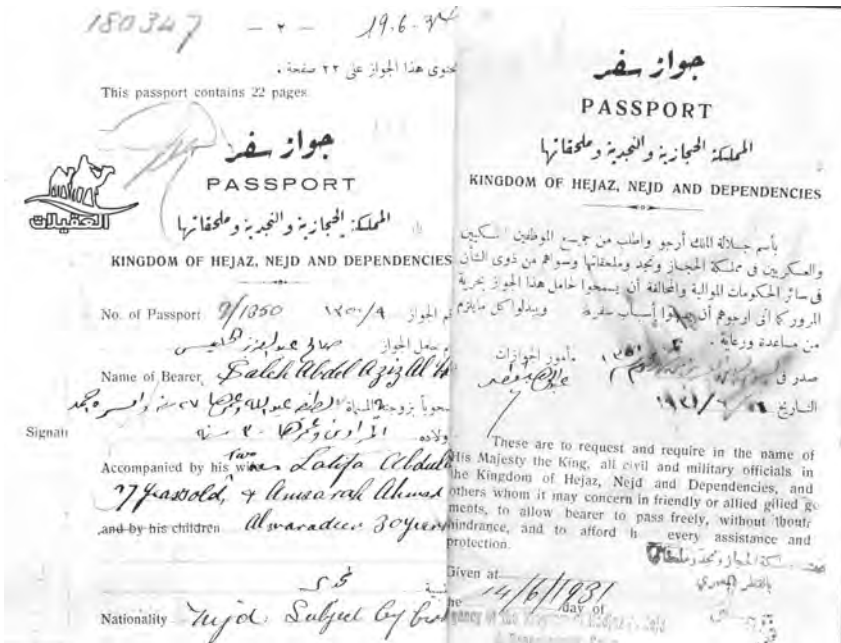 180347 - ٢ - 19.6.
يحتوى هذا الجواز على ٢٢ صفحة .
This passport contains 22 pages.
جواز سفر
PASSPORT
المملكة الحجازية والنجدية وملحقاتها
KINGDOM OF HEJAZ, NEJD AND DEPENDENCIES
العقيلات
No. of Passport 9/1350 ١٣٥٠/٩ رقم الجواز
حامل الجواز صالح عبدالعزيز
Name of Bearer, Saleh Abdel Aziz Al
مصحوباً بزوجته لطيفه عبدالله وعمرها ٢٧ سنة
Signatu
ولاده وعمرها ٣٠ سنه
Two
Accompanied by his wives Latifa Abdul
27 years old, & Ahmad
and by his children Almaradeen 30 years
Nationality Nejd. Subject by
جواز سفر
PASSPORT
المملكة الحجازية والنجدية وملحقاتها
KINGDOM OF HEJAZ, NEJD AND DEPENDENCIES
بأسم جلالة الملك أرجو واطلب من جميع الموظفين الملكيين
والعسكريين فى مملكة الحجاز ونجد وملحقاتها وسواهم من ذوى الشأن
فى سائر الحكومات الموالية والمحالفة أن يسمحوا لحامل هذا الجواز بحرية
المرور كما أنى ارجوهم أن أسباب سفره ويبذلوا كل مايلزم
من مساعدة ورعاية .
مأمور الجوازات
صدر فى
التاريخ ١٩٣١/٦/
These are to request and require in the name of
His Majesty the King, all civil and military officials in
the Kingdom of Hejaz, Nejd and Dependencies, and
others whom it may concern in friendly or allied
ments, to allow bearer to pass freely, without
hindrance, and to afford h every assistance and
protection.
مملكة الحجاز ونجد وملحقاتها
بالقطر المصرى
Given at
the 14/6/1931 day of
Agency of the Kingdom of Hedjaz & Nejd